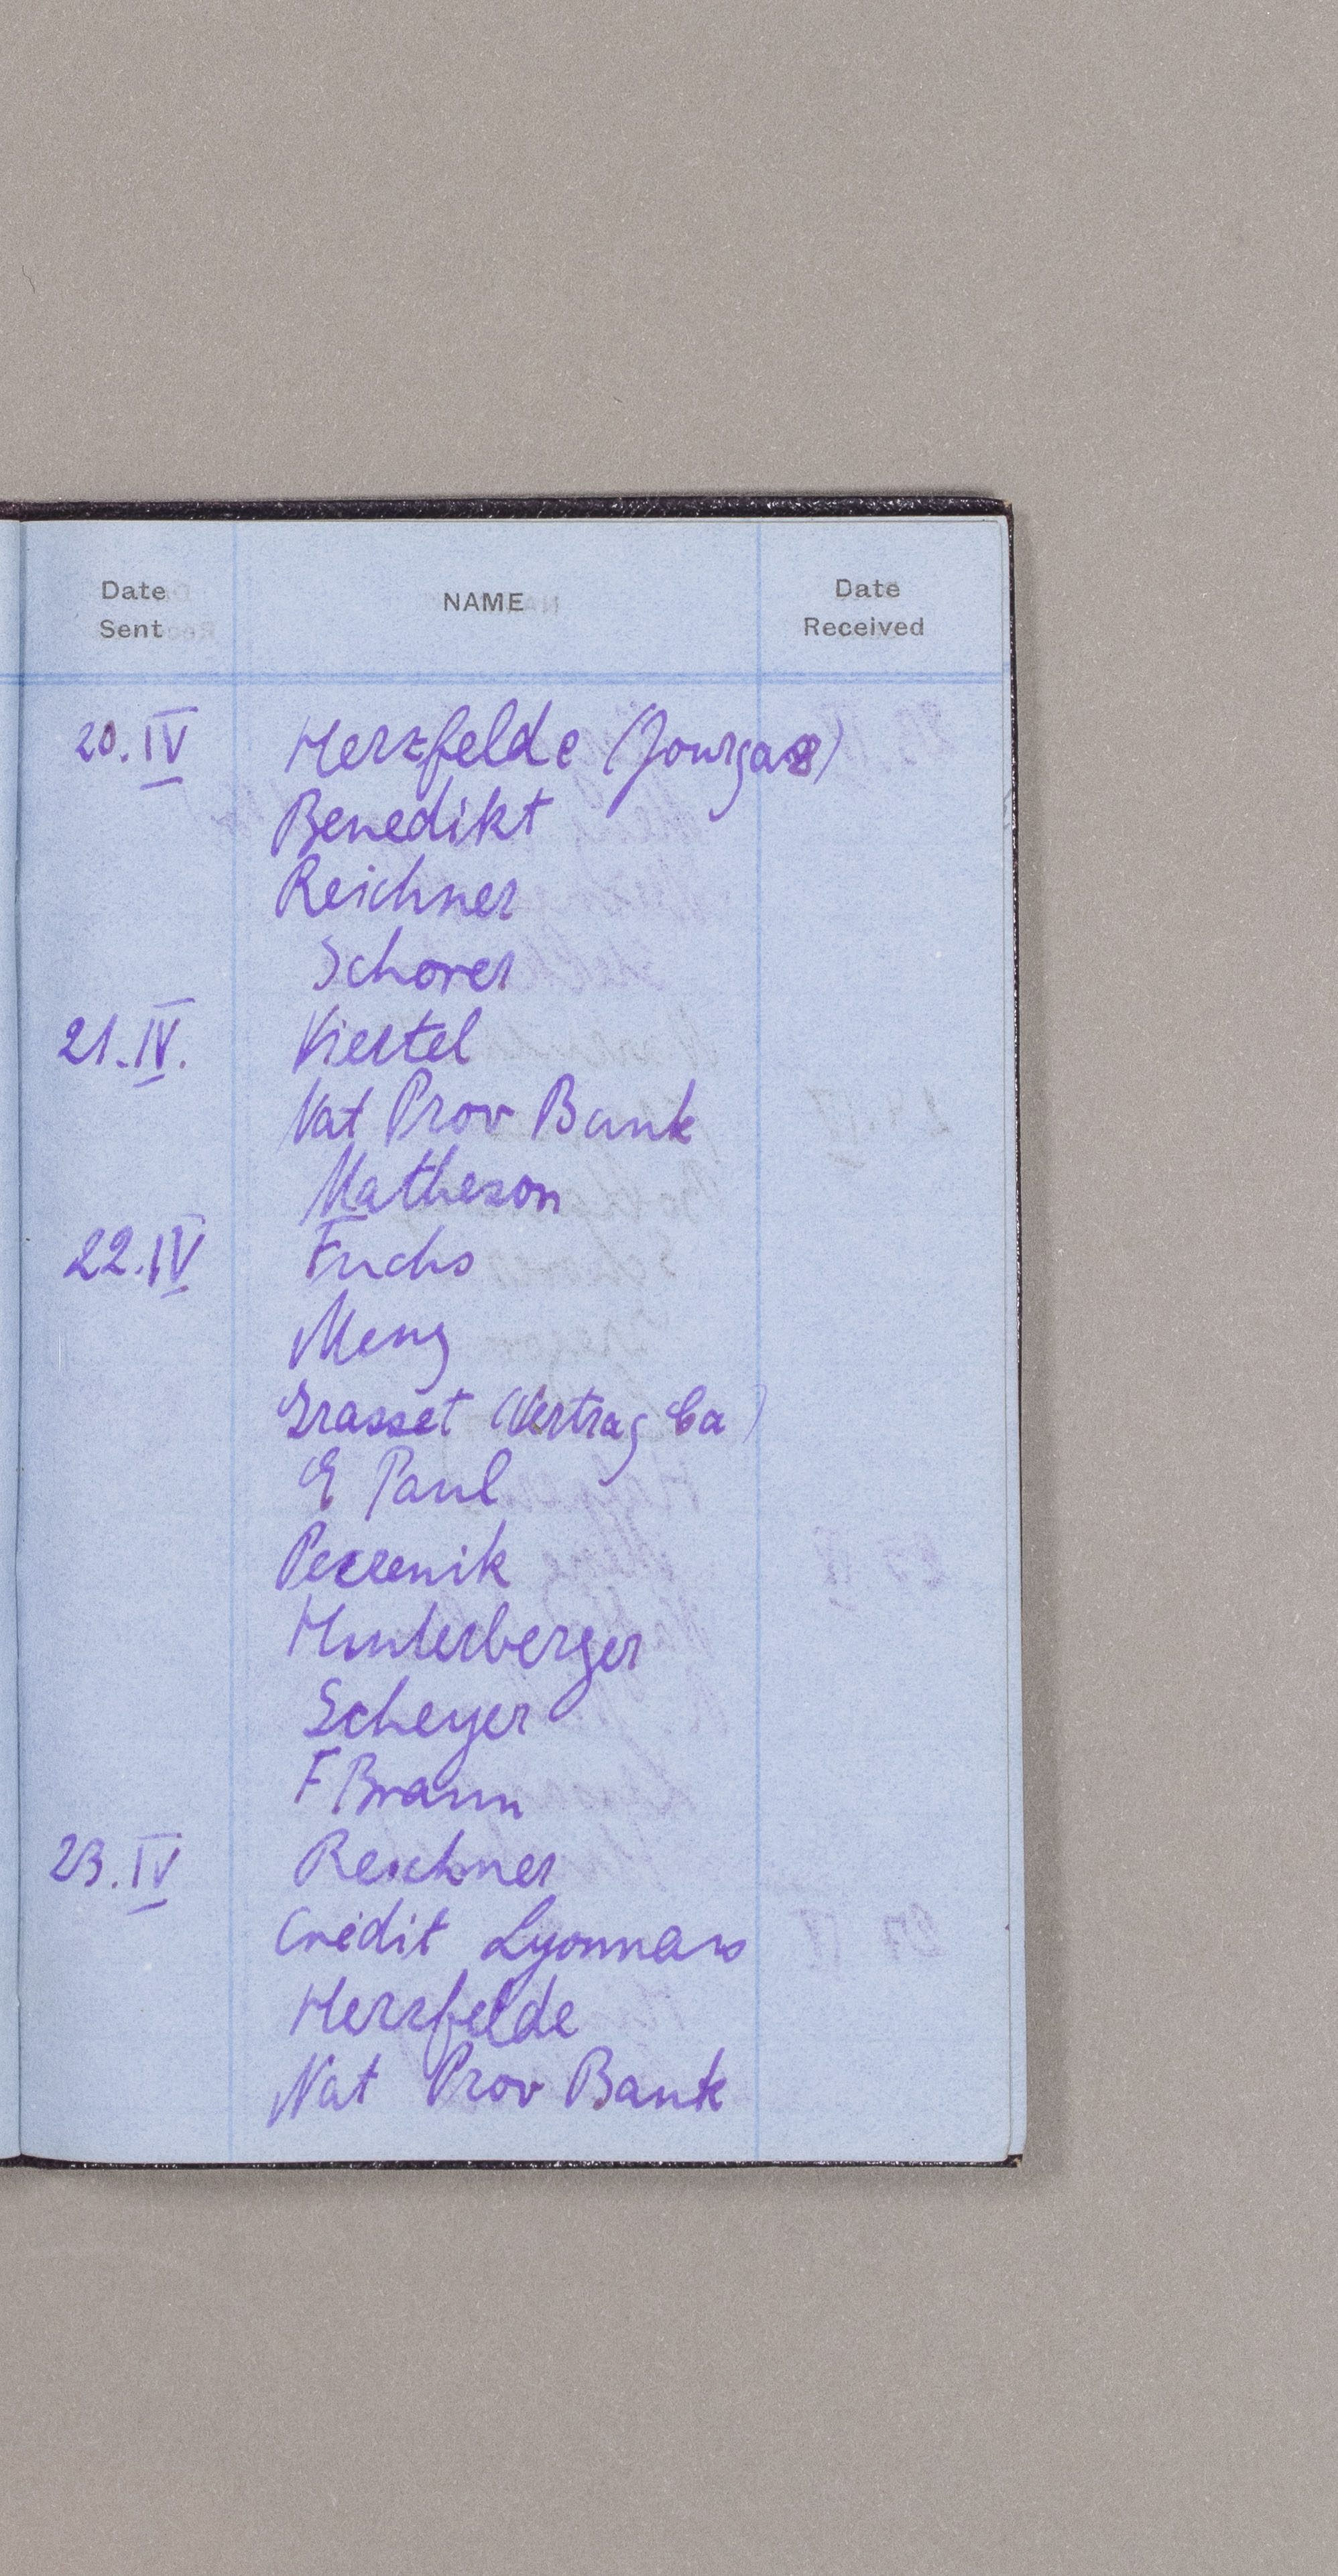 Date Sent NAME Date Received
20.IV Herzfelde
Benedikt
Reichner
Schorer
21.IV. Viertel
Nat Prov Bank
Matheson
22.IV Fuchs
Meng
Grasset (Vertrag Ca)
E Paul
Peczenik
Hinterberger
Scheyer
F Braun
23.IV Reichner
Crédit Lyonnais
Herzfelde
Nat Prov Bank